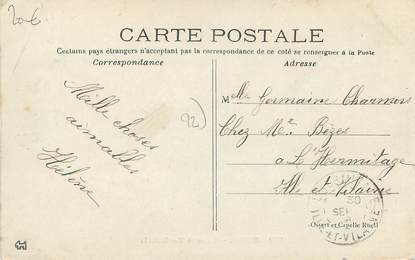 20€
CARTE POSTALE
Certains pays étrangers n'acceptant pas la correspondance de ce coté se renseigner à la Poste
Correspondance
Adresse
Mille choses
aimables
Hélène
92
Melle Germaine Charmois
Chez Me Bèzes
a L'Hermitage
Ille et Vilaine
Ousart et Capelle Rueil